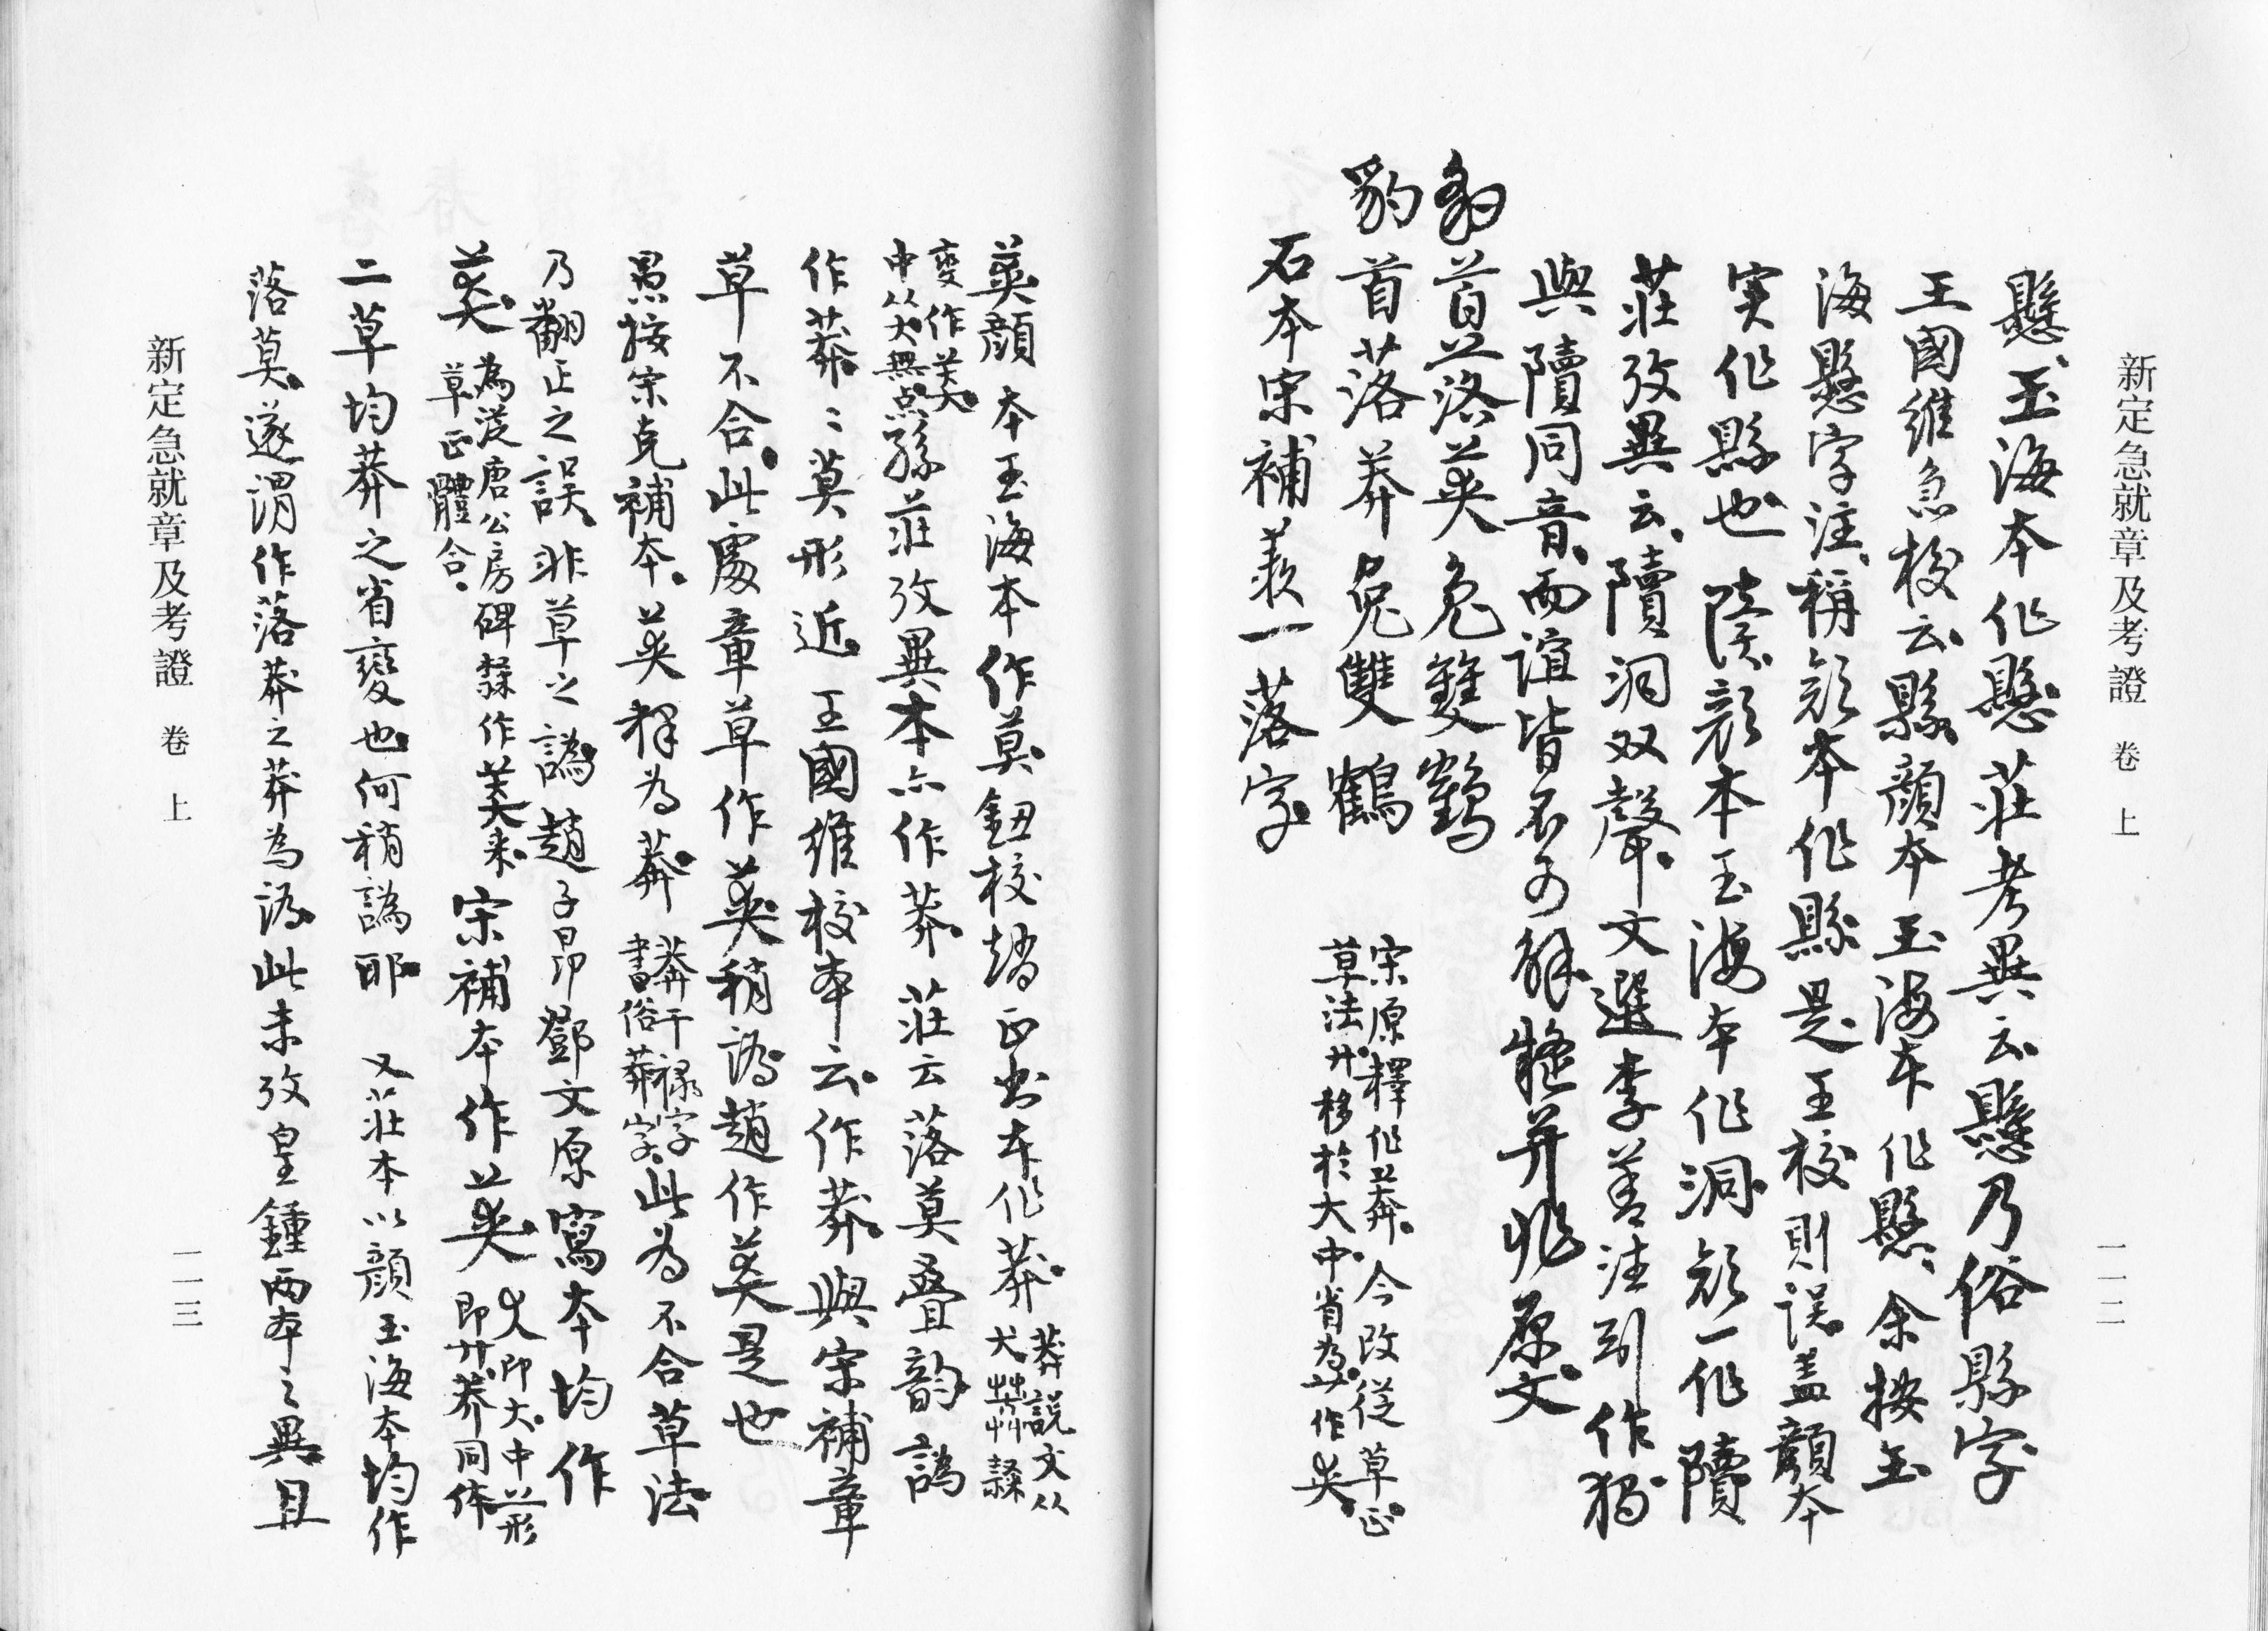 新定急就章及考證 卷上 一一二
懸玉海本作懸莊考異云懸乃俗縣字
王國維急校云縣顏本玉海本作懸余按玉
海懸字注稱顏本作縣是王校則誤盖顏本
实作縣也 顏本玉海本作洞顏一作隫
莊攷異云隫洞双聲文選李善注引作獨
與隫同音而誼皆不可解 并非原文
豹首落莽兔雙鶴
豹首落莽兔雙鶴 宋原釋作莽今改從草正
草法廾移於大中省為 作
石本宋補義一落字
莽顏本玉海本作莫鈕校趙正書本作莽 莽說文从
犬茻隸
變作莽
中从犬無点孫莊攷異本亦作莽莊云落莫叠韵譌
作莽莽莫形近王國維校本云作莽與宋補章
草不合此處章草作 稍譌趙作 是也
愚按宋克補本 釋為莽 莽干禄字
書俗莽字 此為不合草法
乃翻正之誤非草之譌趙子昂鄧文原寫本均作
為从唐公房碑隸作 来
草正體合
宋補本作 犬即大中 形
即廾莽同体
二草均莽之省變也何稍譌耶 又莊本以顏玉海本均作
落莫遂謂作落莽之莽為譌此未攷皇鍾兩本之異且
新定急就章及考證 卷上 一一三